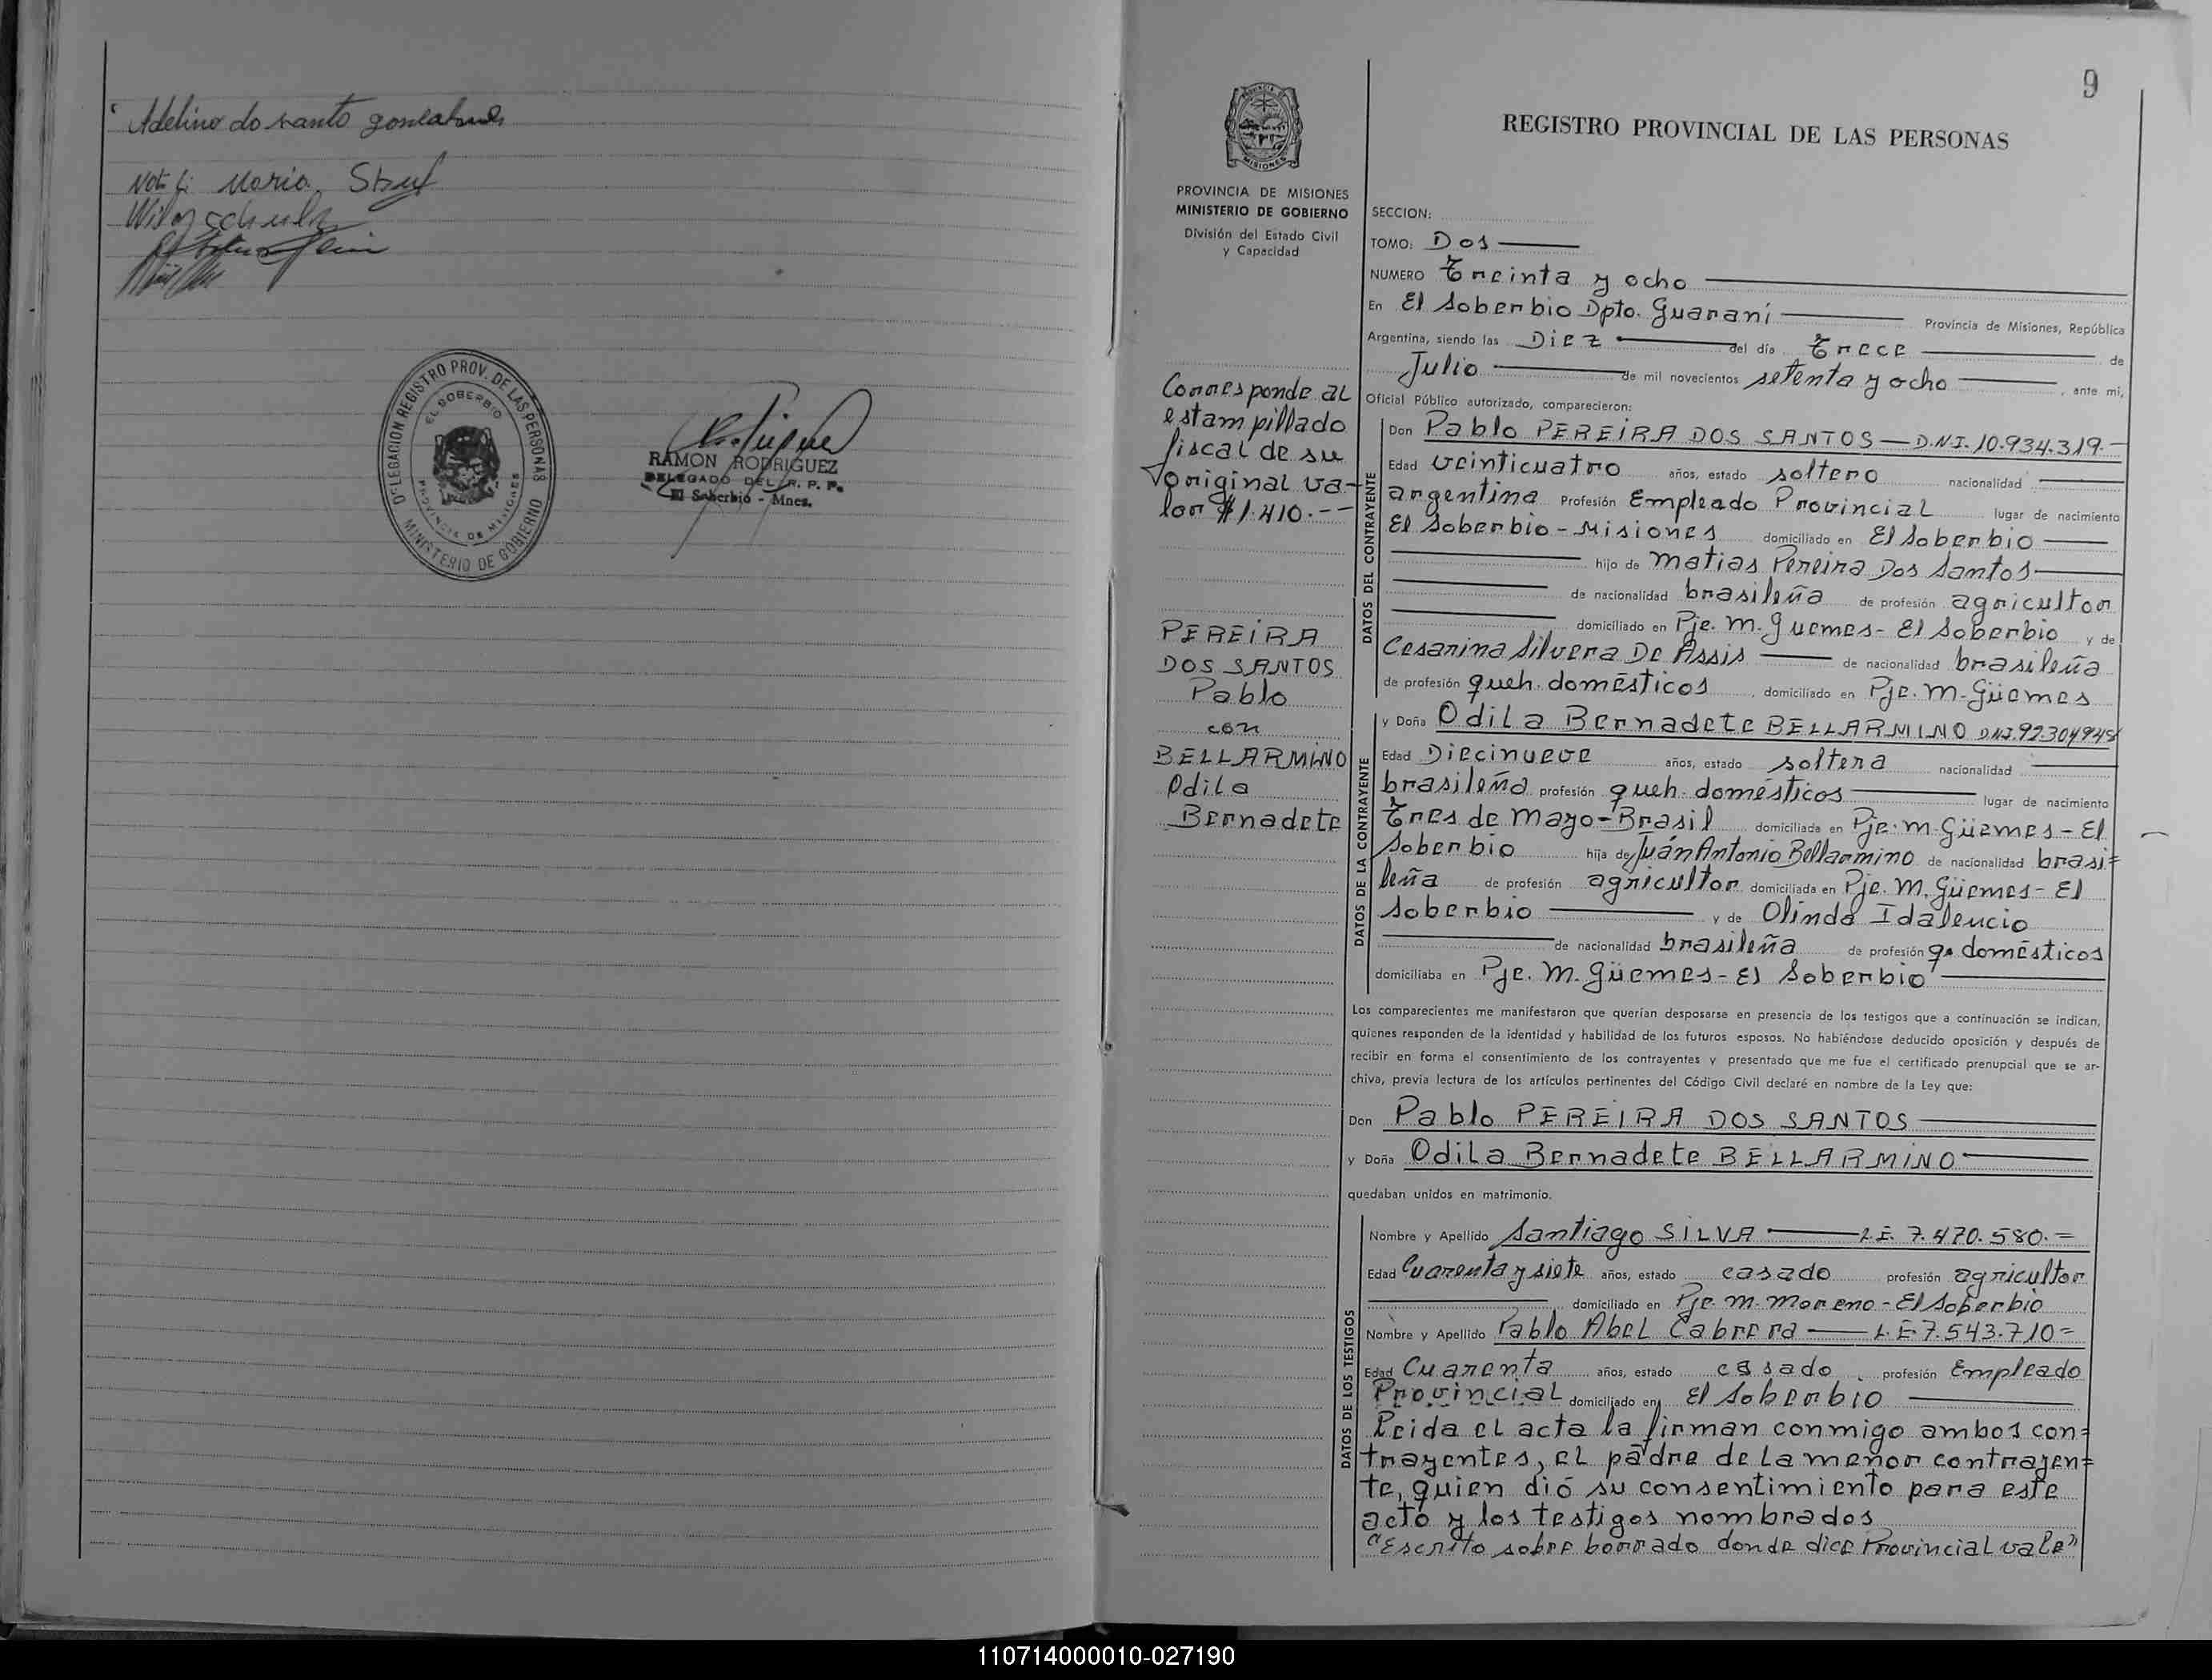 Adelino do santo
Maria
DELEGACION REGISTRO PROV. DE LAS PERSONAS
EL SOBERBIO
PROVINCIA DE MISIONES
MINISTERIO DE GOBIERNO
RAMON RODRIGUEZ
DELEGADO DEL R. P. P.
El Soberbio - Mnes.
9
PROVINCIA DE MISIONES
MINISTERIO DE GOBIERNO
División del Estado Civil
y Capacidad
Corresponde al
estampillado
fiscal de su
original va-
lor $ 1.410.--
PEREIRA
DOS SANTOS
Pablo
con
BELLARMINO
Odila
Bernadete
REGISTRO PROVINCIAL DE LAS PERSONAS
SECCION:
TOMO: Dos
NUMERO Treinta y ocho
En El Soberbio Dpto. Guaraní Provincia de Misiones, República
Argentina, siendo las Diez del día Trece de
Julio de mil novecientos setenta y ocho, ante mi,
Oficial Público autorizado, comparecieron:
DATOS DEL CONTRAYENTE
Don Pablo PEREIRA DOS SANTOS — D.N.I. 10.934.319.-
Edad veinticuatro años, estado soltero nacionalidad
argentina Profesión Empleado Provincial lugar de nacimiento
El Soberbio - Misiones domiciliado en El Soberbio
hijo de Matias Pereira Dos Santos
de nacionalidad brasileña de profesión agricultor
domiciliado en Pje. M. Guemes - El Soberbio y de
Cesarina Silvera De Assis de nacionalidad brasileña
de profesión queh. domésticos, domiciliado en Pje. M. Güemes
DATOS DE LA CONTRAYENTE
y Doña Odila Bernadete BELLARMINO D.N.I. 92.304948
Edad Diecinueve años, estado soltera nacionalidad
brasileña profesión queh. domésticos lugar de nacimiento
Tres de Mayo - Brasil domiciliada en Pje. M. Güemes - El
Soberbio hija de Juán Antonio Bellarmino de nacionalidad brasi=
leña de profesión agricultor domiciliada en Pje. M. Güemes - El
Soberbio y de Olinda Idalencio
de nacionalidad brasileña de profesión q. domésticos
domiciliaba en Pje. M. Güemes - El Soberbio
Los comparecientes me manifestaron que querían desposarse en presencia de los testigos que a continuación se indican,
quienes responden de la identidad y habilidad de los futuros esposos. No habiéndose deducido oposición y después de
recibir en forma el consentimiento de los contrayentes y presentado que me fue el certificado prenupcial que se ar-
chiva, previa lectura de los artículos pertinentes del Código Civil declaré en nombre de la Ley que:
Don Pablo PEREIRA DOS SANTOS
y Doña Odila Bernadete BELLARMINO
quedaban unidos en matrimonio.
DATOS DE LOS TESTIGOS
Nombre y Apellido Santiago SILVA L.E. 7.470.580.=
Edad Cuarenta y siete años, estado casado profesión agricultor
domiciliado en Pje. M. Moreno - El Soberbio
Nombre y Apellido Pablo Abel Cabrera L.E. 7.543.710=
Edad Cuarenta años, estado casado profesión Empleado
Provincial domiciliado en El Soberbio
Leida el acta la firman conmigo ambos con=
trayentes, el padre de la menor contrayen=
te, quien dió su consentimiento para este
acto y los testigos nombrados
"Escrito sobre borrado donde dice Provincial vale"
110714000010-027190